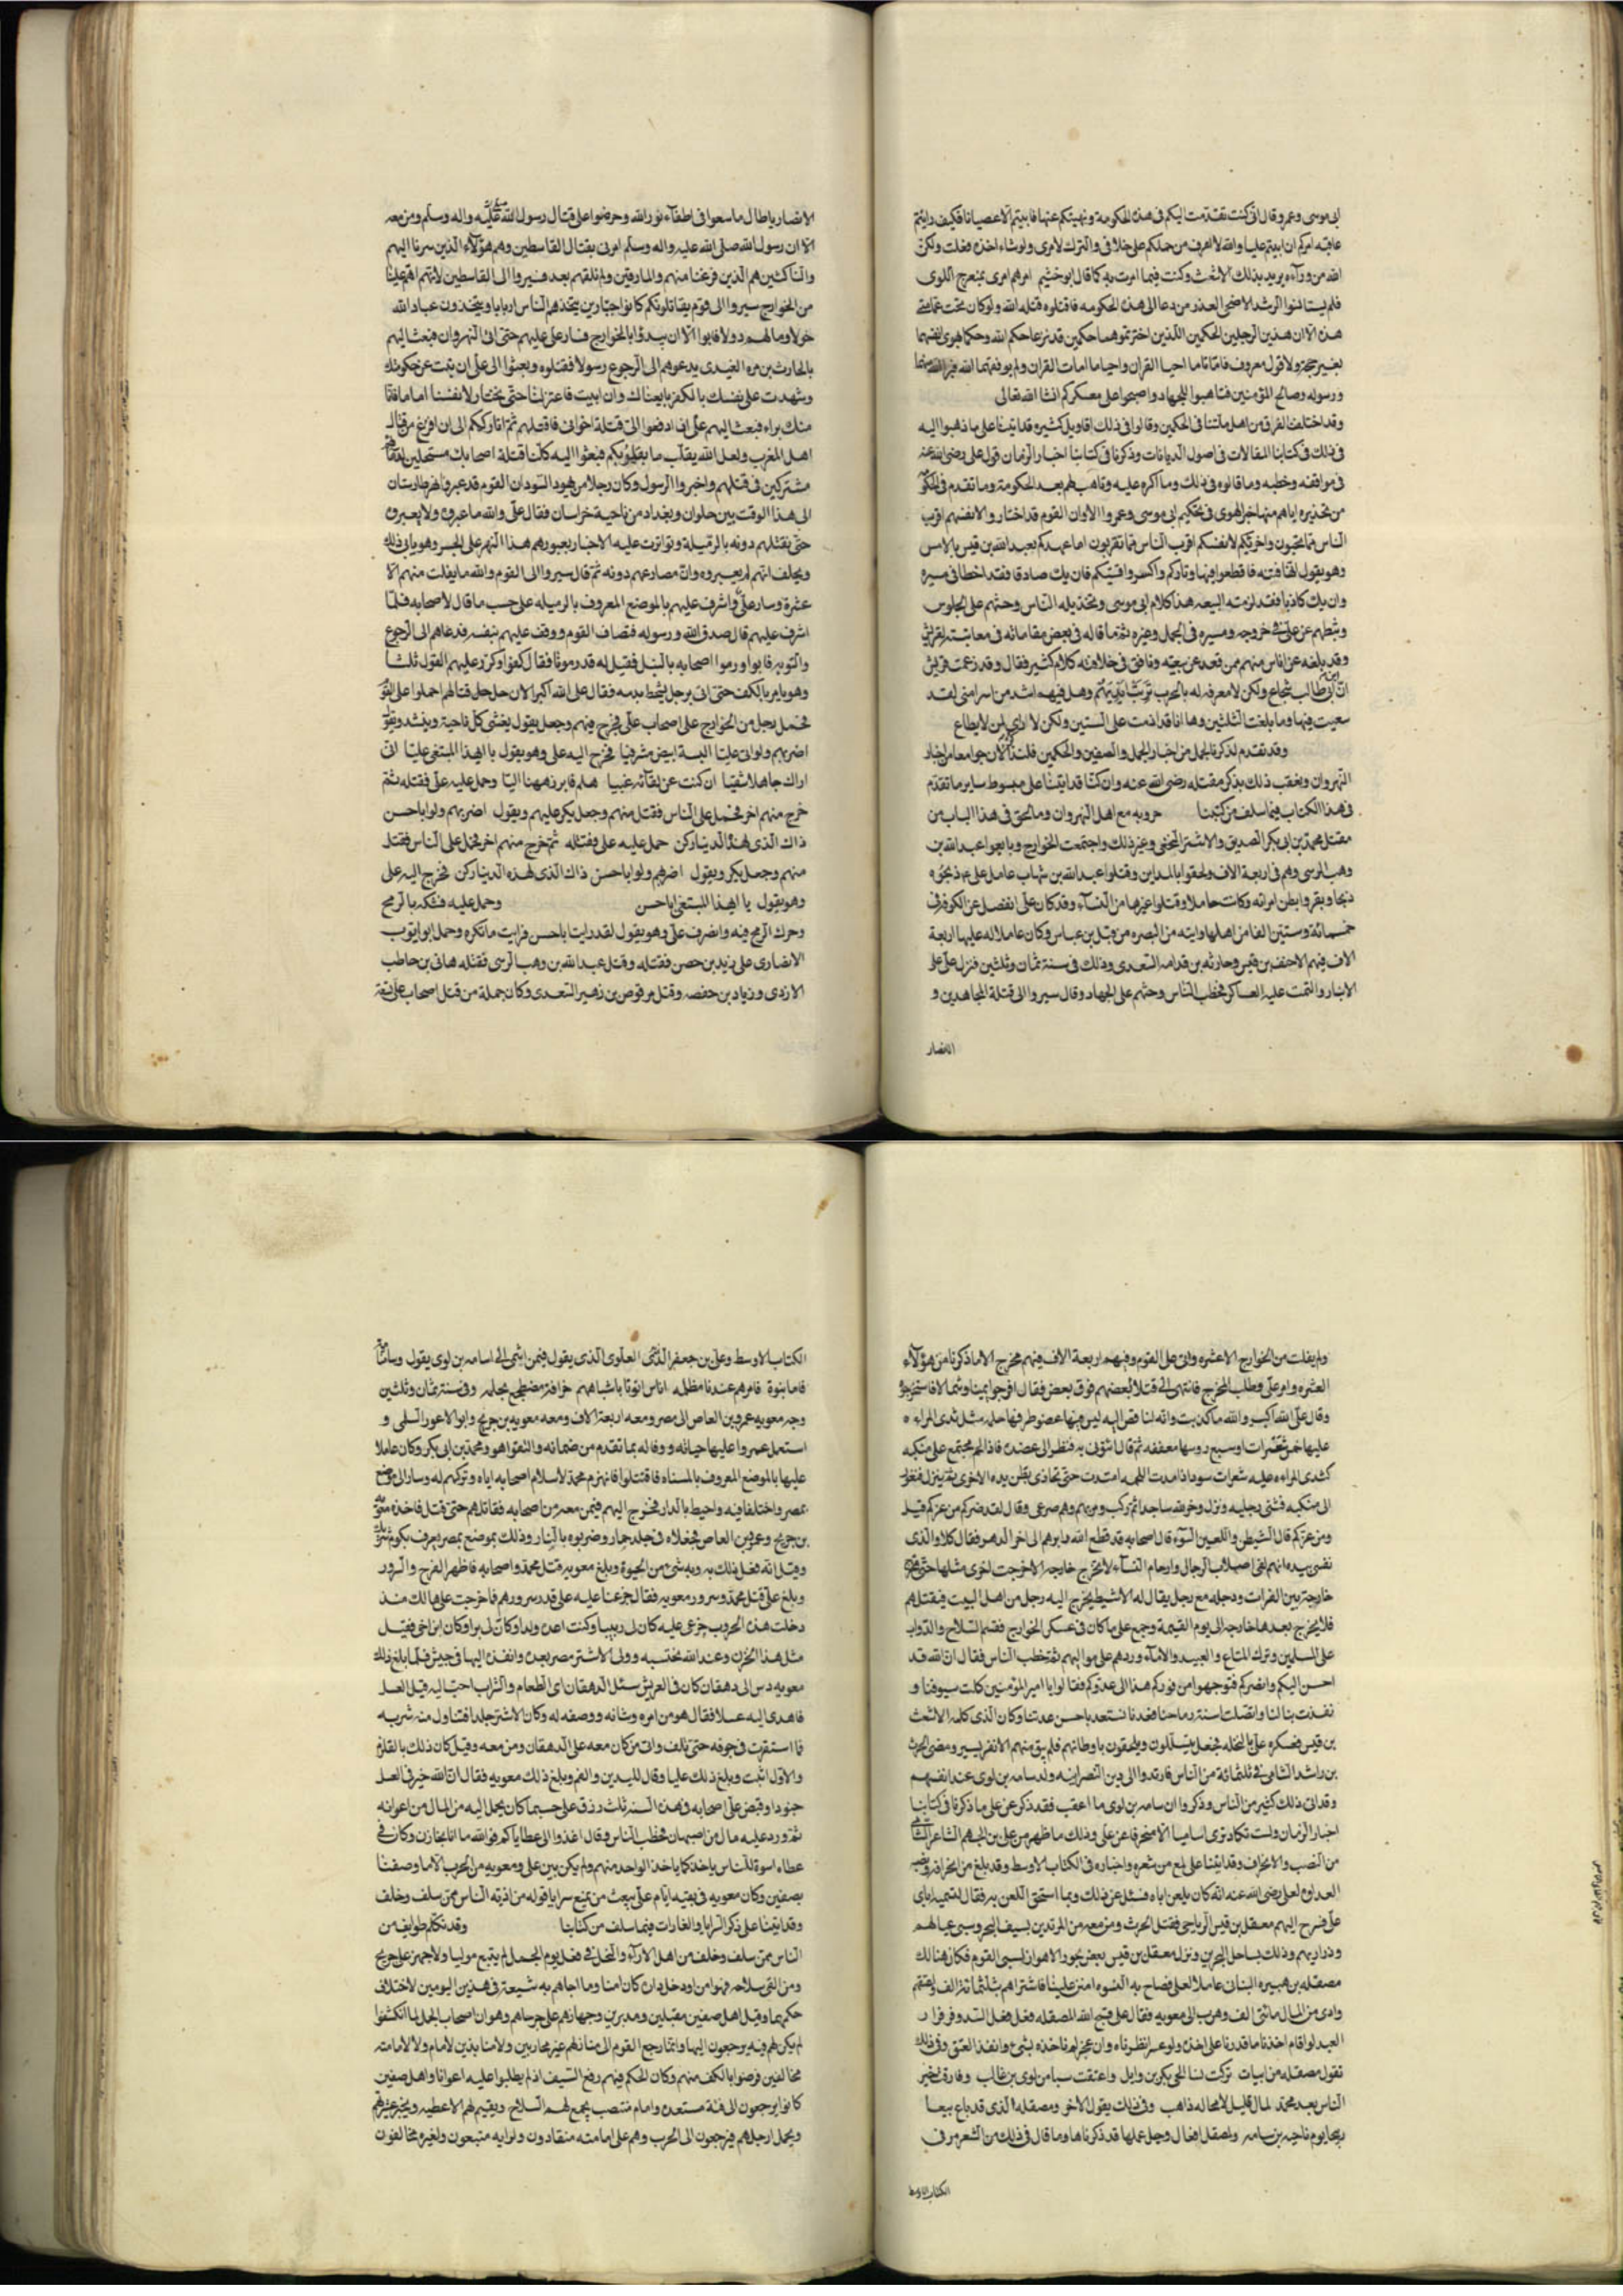 ابى موسى وعمرو قال انى كنت تقدمت اليكم فى هذه الحكومة ونهيتكم عنها فابيتم الا عصيانى فكيف رايتم
عاقبة امركم ان ابيتم عليا والله لا اعرف من حملكم على خلافى والترك لامرى ولو شاء اخذه فعلت ولكن
الله من وراءه يريد بذلك الاشعث وكنت فيما امرت به كما قال ابو خثيم امرهم امرى بمنعرج اللوى
فلم يستبينوا الرشد الا ضحى الغد من دعا الى هذه الحكومه فاقتلوه قتله الله ولو كان تحت عمامتى
هذه الا ان هذين الرجلين الحكمين اللذين اخترتموهما حكمين قد نزعا حكم الله وحكما بهوى انفسهما
بغير حجة ولا قول معروف فاماتا ما احيا القران واحيا ما امات القران
ورسوله وصالح المؤمنين فتاهبوا للجهاد واصبحوا على معسكركم انشا الله تعالى
وقد اختلف الفرق من اهل ملتنا فى الحكمين وقالوا فى ذلك اقاويل كثيره قد اتينا على ما ذهبوا اليه
فى ذلك فى كتابنا المقالات فى اصول الديانات وذكرنا فى كتابنا اخبار الزمان قول على رضى الله عنه
فى مواقفه وخطبه وما قالوه فى ذلك وما اكره عليه وتاهب لهم بعد الحكومة وما تقدم فى الحكومة
من تحذيره اياهم منها حين الهوى فى تحكيم ابى موسى وعمرو الا وان القوم قد اختاروا لانفسهم اقرب
الناس مما يحبون واخترتم لانفسكم اقرب الناس مما تكرهون انما عهدكم بعبد الله بن قيس بالامس
وهو يقول انها فتنه فاقطعوا فيها اوتاركم واكسروا قسيكم فان يك صادقا فقد اخطا فى مسيره
وان يك كاذبا فقد لزمته التهمه هذا كلام ابى موسى وتخذيله الناس وحثهم على الجلوس
وتثبيطهم عن على فى خروجه ومسيره فى الجمل وغيره ثم ما قاله فى بعض مقاماته فى معاتبته لقريش
وقد بلغه عن اناس منهم ممن قعد عن بيعته ونافق فى خلافته كلام كثير فقال وقد زعمت قريش
ان ابن ابى طالب شجاع ولكن لا معرفه له بالحرب تربت ايديهم وهل فيهم اشد مراسا منى لقد
سعيت فيها وما بلغت الثلثين وها انا قد اذمت على الستين ولكن لا راى لمن لا يطاع
وقد تقدم ذكرنا لجمل من اخبار الجمل والصفين والحكمين فلنذكر الان جوامع من اخبار
النهروان ونعقب ذلك بذكر مقتله رضى الله عنه وان كنا قد اتينا على مبسوط ساير ما تقدم
فى هذا الكتاب فيما سلف من كتبنا حروبه مع اهل النهروان وما لحق فى هذا الباب من
مقتل محمد بن ابى بكر الصديق والاشتر النخعى وغير ذلك واجتمعت الخوارج وبايعوا عبد الله بن
وهب الرسى وهم فى اربعة الاف ولحقوا بالمداين وقتلوا عبد الله بن شهاب عامل على عم ذبحوه
ذبحا وبقروا بطن امراته وكانت حاملا وقتلوا غيرها من النساء وقد كان على انفصل عن الكوفة فى
خمسمائة وستين الفا من اهلها واتته من البصره من قبل بن عباس وكان عاملا له عليها اربعة
الاف فيهم الاحنف بن قيس وحارثه بن قدامه السعدى وذلك فى سنة ثمان وثلثين فنزل على على
الانبار والتمت عليه العساكر فخطب الناس وحثهم على الجهاد وقال سيروا الى قتلة المجاهدين و
الانصار
الانصار يا طال ما سعوا فى اطفاء نور الله وحرضوا على قتال رسول الله صلى الله عليه واله وسلم ومن معه
الا ان رسول الله صلى الله عليه واله وسلم امرنى بقتال القاسطين وهم هؤلاء الذين سرنا اليهم
والناكثين هم الذين فرغنا منهم والمارقين ولم نلقهم بعد فسيروا الى القاسطين لانهم اهم علينا
من الخوارج سيروا الى قوم يقاتلونكم كانوا جبارين يتخذهم الناس اربابا ويتخذون عباد الله
خولا ومالهم دولا فابوا الا ان يبدؤا بالخوارج فسار على عليهم حتى اتى النهروان فبعث اليهم
بالحارث بن مره العبدى يدعوهم الى الرجوع رسولا فقتلوه وبعثوا الى على ان تبت عن حكومتك
وشهدت على نفسك بالكفر بايعناك وان ابيت فاعتزلنا حتى نختار لانفسنا اماما فانا
منك براء فبعث اليهم على ان ادفعوا الى قتلة اخوانى فاقتلهم ثم اتارككم الى ان افرغ من قتال
اهل المغرب ولعل الله يقلب ما بقلوبكم فبعثوا اليه كلنا قتلة اصحابك مستحلين لدمائهم
مشتركين فى قتلهم واخبروا الرسول وكان رجلا من يهود السودان القوم قد عبروا نهر طارستان
الى هذا الوقت بين حلوان وبغداد من ناحية خراسان فقال على والله ما عبروه ولا يعبروه
حتى نقتلهم دونه بالرميلة وتواترت عليه الاخبار بعبورهم هذا النهر على الجسر وهو يابى ذلك
ويحلف انهم لم يعبروه وان مصارعهم دونه ثم قال سيروا الى القوم والله ما يفلت منهم الا
عشرة وسار على واشرف عليهم بالموضع المعروف بالرميله على حسب ما قال لاصحابه فلما
اشرف عليهم قال صدق الله ورسوله فتصاف القوم ووقف عليهم بنفسه فدعاهم الى الرجوع
والتوبه فابوا ورموا اصحابه بالنبل فقيل له قد رمونا فقال كفوا وكرر عليهم القول ثلثا
وهو يامر بالكف حتى اتى برجل يشحط بدمه فقال على الله اكبر الان حل حل قتالهم احملوا على القوم
فحمل رجل من الخوارج على اصحاب على فجرح فيهم وجعل يقول يغشى كل ناحية وينشد ويقول
اضربهم ولو ارى عليا البسه ابيض مشرفيا فخرج اليه على وهو يقول يا ايهذا المبتغى عليا انى
اراك جاهلا شقيا ان كنت عن لقائه غبيا هلم فابرز ههنا اليا وحمل عليه على فقتله ثم
خرج منهم اخر فحمل على الناس فقتل منهم وجعل يكر عليهم ويقول اضربهم ولو ابا حسن
ذاك الذى لهذه الدنيا ركن حمل عليه على فقتله ثم خرج منهم اخر فحمل على الناس فقتل
منهم وجعل يكر ويقول اضربهم ولو ابا حسن ذاك الذى لهذه الدنيا ركن فخرج اليه على
وهو يقول يا ايهذا المبتغى ابا حسن وحمل عليه فشكه بالرمح
وحرك الرمح فيه وانصرف على وهو يقول لقد رايت ابا حسن فرايت ما تكره وحمل ابو ايوب
الانصارى على زيد بن حصن فقتله وقتل عبد الله بن وهب الرسى قتله هانى بن حاطب
الازدى وزياد بن حفصه وقتل حرقوص بن زهير السعدى وكان جملة من قتل اصحاب على تسعة
ولم يفلت من الخوارج الا عشره واتى على القوم وفيهم اربعة الاف فيهم مخرج الا ما ذكرنا من هؤلاء
العشره وامر على وطلب المخرج فانتهى الى قتلا بعضهم فوق بعض فقال افرجوا يمينا وشمالا فاستخرجوه
وقال على الله اكبر والله ما كذبت وانه لناقص اليد ليس فيها عظم طرفها حلمه مثل ثدى المراءه
عليها خمس شعرات او سبع روسها معقفه ثم قال ائتونى به فنظر الى عضده فاذا لحم مجتمع على منكبه
كثدى المراءه عليه شعرات سود اذا مدت اللحمه امتدت حتى تحاذى بطن يده الاخرى ثم يترك فتعود
الى منكبه فثنى رجليه ونزل وخر لله ساجدا ثم ركب ومر بهم وهم صرعى وقال لقد ضركم من غركم قيل
ومن غركم قال الشيطان والنفس السوء قال اصحابه قد قطع الله دابرهم الى اخر الدهر فقال كلا والذى
نفسى بيده انهم لفى اصلاب الرجال وارحام النساء لا تخرج خارجه الا خرجت اخرى مثلها حتى تخرج
خارجة بين الفرات ودجله مع رجل يقال له الاشيط يخرج اليه رجل من اهل البيت فيقتلهم
فلا يخرج بعدها خارجه الى يوم القيمة وجمع على ما كان فى عسكر الخوارج فقسم السلاح والدواب
على المسلمين وترك المتاع والعبيد والاماء وردهم على مواليهم ثم خطب الناس فقال ان الله قد
احسن اليكم وانصركم فتوجهوا من فوركم هذا الى عدوكم فقالوا يا امير المؤمنين كلت سيوفنا و
نفدت نبالنا ونصلت اسنة رماحنا فعدنا نستعد باحسن عدتنا وكان الذى كلمه الاشعث
بن قيس فعسكر على بالنخله فجعل يتسللون ويلحقون باوطانهم فلم يبق منهم الا نفر يسير ومضى الحرث
بن راشد الناجى فى ثلثمائة من الناس فارتدوا الى دين النصرانيه ولد سامه بن لوى عند انفسهم
وقد ابى ذلك كثير من الناس وذكروا ان سامه بن لوى ما اعقب فقد ذكر عن على ما ذكرنا فى كتابنا
اخبار الزمان ولست تكاد ترى ساميا الا منحرفا عن على وذلك ما ظهر من على بن الجهم الشاعر
من النصب والانحراف وقد اتينا على لمع من شعره واخباره فى الكتاب الاوسط وقد بلغ من انحرافه ونصبه
العداوه لعلى رضى الله عنه انه كان يلعن اباه فسئل عن ذلك وبما استحق اللعن به فقال لتسميه اياى
على فسرح اليهم معقل بن قيس الرياحى فقتل الحرث ومن معه من المرتدين بسيف البحر وسبى عيالهم
وذراريهم وذلك بساحل البحرين ونزل معقل بن قيس بعض بحور الاهواز بسبى القوم فكان هنالك
مصقله بن هبيره الشيبانى عاملا لعلى فصاح به النسوه امنن علينا فاشتراهم بثلثمائة الف واعتقهم
وادى من المال مائتى الف وهرب الى معويه فقال على قبح الله المصقله فعل فعل السيد وفر فرار
العبد لو اقام اخذنا ما قدرنا على اخذه ولو عسر انظرناه وان عجز لم ناخذه بشئ وانفذ العتق وفى ذلك
يقول مصقله من ابيات تركت نسا الحى بكر بن وايل واعتقت سبيا من لوى بن غالب وفارقت خير
الناس بعد محمد لمال قليل لا محاله ذاهب وفى ذلك يقول الاخر ومصقله الذى قد باع بيعا
ربيحا يوم ناجيه بن سامه ولمصقله افعال وجل عملها قد ذكرناها وما قال فى ذلك من الشعر مر فى
الكتاب الاوسط
الكتاب الاوسط وعلى بن جعفر العلوى الذى يقول فيمن انتمى الى سامه بن لوى يقول وسامة منا
فاما بنوة فامرهم عندنا مظلم اناس اتونا بانسابهم خرافة مضطجع يحلم وفى سنة ثمان وثلثين
وجه معويه عمرو بن العاص الى مصر ومعه اربعة الاف ومعه معويه بن حديج وابو الاعور السلمى و
استعمل عمروا عليها حياته ووفا له بما تقدم من ضمانه والتقوا هو ومحمد بن ابى بكر وكان عاملا
عليها بالموضع المعروف بالمسناه فاقتتلوا فانهزم محمد لاسلام اصحابه اياه وتركهم له وسار الى موضع
بمصر واختفا فيه واحيط بالدار فخرج اليهم فيمن معه من اصحابه فقاتلهم حتى قتل فاخذه معويه
بن حديج وعمرو بن العاص فجعلاه فى جلد حمار وضربوه بالنار وذلك بموضع بمصر يعرف بكوم شريك
وقيل انه فعل ذلك به وبه شئ من الحيوة وبلغ معويه قتل محمد واصحابه فاظهر الفرح والسرور
وبلغ على قتل محمد وسرور معويه فقال جزعنا عليه على قدر سرورهم فما جزعت على هالك منذ
دخلت هذه الحروب جزعى عليه كان لى ربيبا وكنت اعده ولدا وكان بى برا وكان ابن اخى فعلى
مثل هذا الحزن وعند الله نحتسبه وولى الاشتر مصر بعده وانفذه اليها فى جيش فلما بلغ ذلك
معويه دس الى دهقان كان فى العريش سئل الدهقان اى الطعام والشراب احب اليه قيل العسل
فاهدى اليه عسلا فقال هو من امره وشانه ووصفه له وكان الاشتر جلدا فتناول منه شربه
فما استقرت فى جوفه حتى تلف واتى من كان معه على الدهقان ومن معه وقيل كان ذلك بالقلزم
والاول اثبت وبلغ ذلك عليا وقال لليدين والفم وبلغ ذلك معويه فقال ان لله خيرا فى العسل
جنودا وقبض على اصحابه فى هذه السنه ثلث رزق على حسب ما كان يحمل اليه من المال من اعوانه
ثم ورد عليه مال من اصبهان فخطب الناس وقال اغدوا الى عطاياكم فوالله ما انا بخازن وكان فى
عطاه اسوة للناس ياخذ كما ياخذ الواحد منهم ولم يكن بين على ومعويه من الحرب الا ما وصفنا
بصفين وكان معويه فى بقيه ايام على يبعث من يمنع سرايا قوله من اذيه الناس ممن سلف وخلف
وقد اتينا على ذكر السرايا والغارات فيما سلف من كتابنا وقد تكلم طوايف من
الناس ممن سلف وخلف من اهل الاراء والنحل فى فعل يوم الجمل لم يتبع موليا ولا اجهز على جريح
ومن القى سلاحه فهو امن او دخل داره كان امنا وما اجاهم به شيعته فى هذين اليومين لاختلاف
حكمهما وقيل اهل صفين مقبلين ومدبرين وجهازهم على جرحاهم وهو ان اصحاب الجمل لما انكشفوا
لم يكن لهم فئه يرجعون اليها وانما رجع القوم الى منازلهم غير محاربين ولا منابذين لامام ولا لامامته
مخالفين فرضوا بالكف عنهم وكان الحكم فيهم رفع السيف اذ لم يطلبوا عليه اعوانا واهل صفين
كانوا يرجعون الى فئة مستعده وامام منتصب يجمع لهم السلاح ويقيم لهم الاعطيه ويجبر عثرتهم
ويحمل ارجلهم فيرجعون الى الحرب وهم على امامته منقادون ولرايه متبعون ولغيره مخالفون